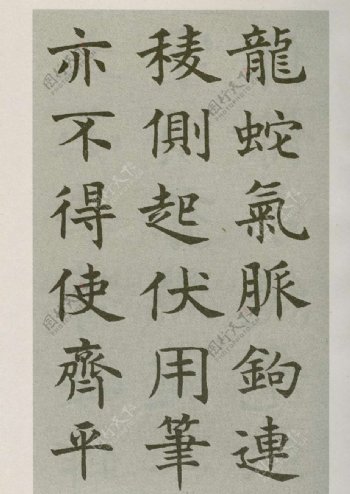 龍蛇氣脈鉤連
稜側起伏用筆
亦不得使齊平